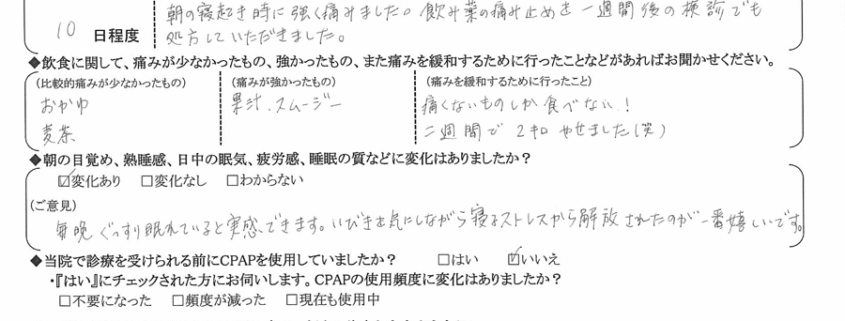 朝の寝起き時に強く痛みました。飲み薬の痛み止めを一週間後の検診でも
10 日程度 処方していただきました。
◆飲食に関して、痛みが少なかったもの、強かったもの、また痛みを緩和するために行ったことなどがあればお聞かせください。
(比較的痛みが少なかったもの) (痛みが強かったもの) (痛みを緩和するために行ったこと)
おかゆ 果汁、スムージー 痛くないものしか食べない!
麦茶 二週間で2キロやせました(笑)
◆朝の目覚め、熟睡感、日中の眠気、疲労感、睡眠の質などに変化はありましたか?
☑変化あり □変化なし □わからない
(ご意見)
毎晩ぐっすり眠れていると実感できます。いびきを気にしながら寝るストレスから解放されたのが一番嬉しいです。
◆当院で診療を受けられる前にCPAPを使用していましたか? □はい ☑いいえ
・『はい』にチェックされた方にお伺いします。CPAPの使用頻度に変化はありましたか?
□不要になった □頻度が減った □現在も使用中